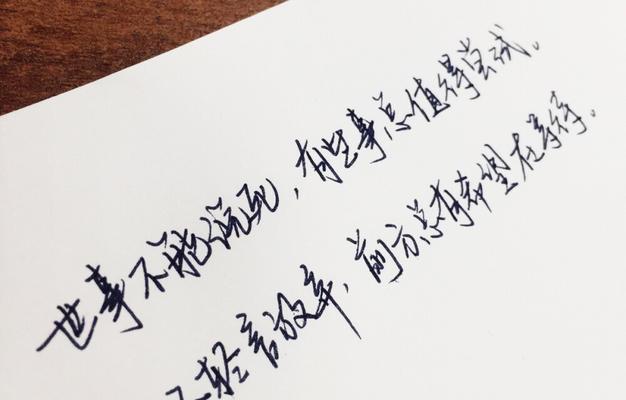 世事不能说死，有些事总值得尝试。
不轻言放弃，前方总有希望在等待。